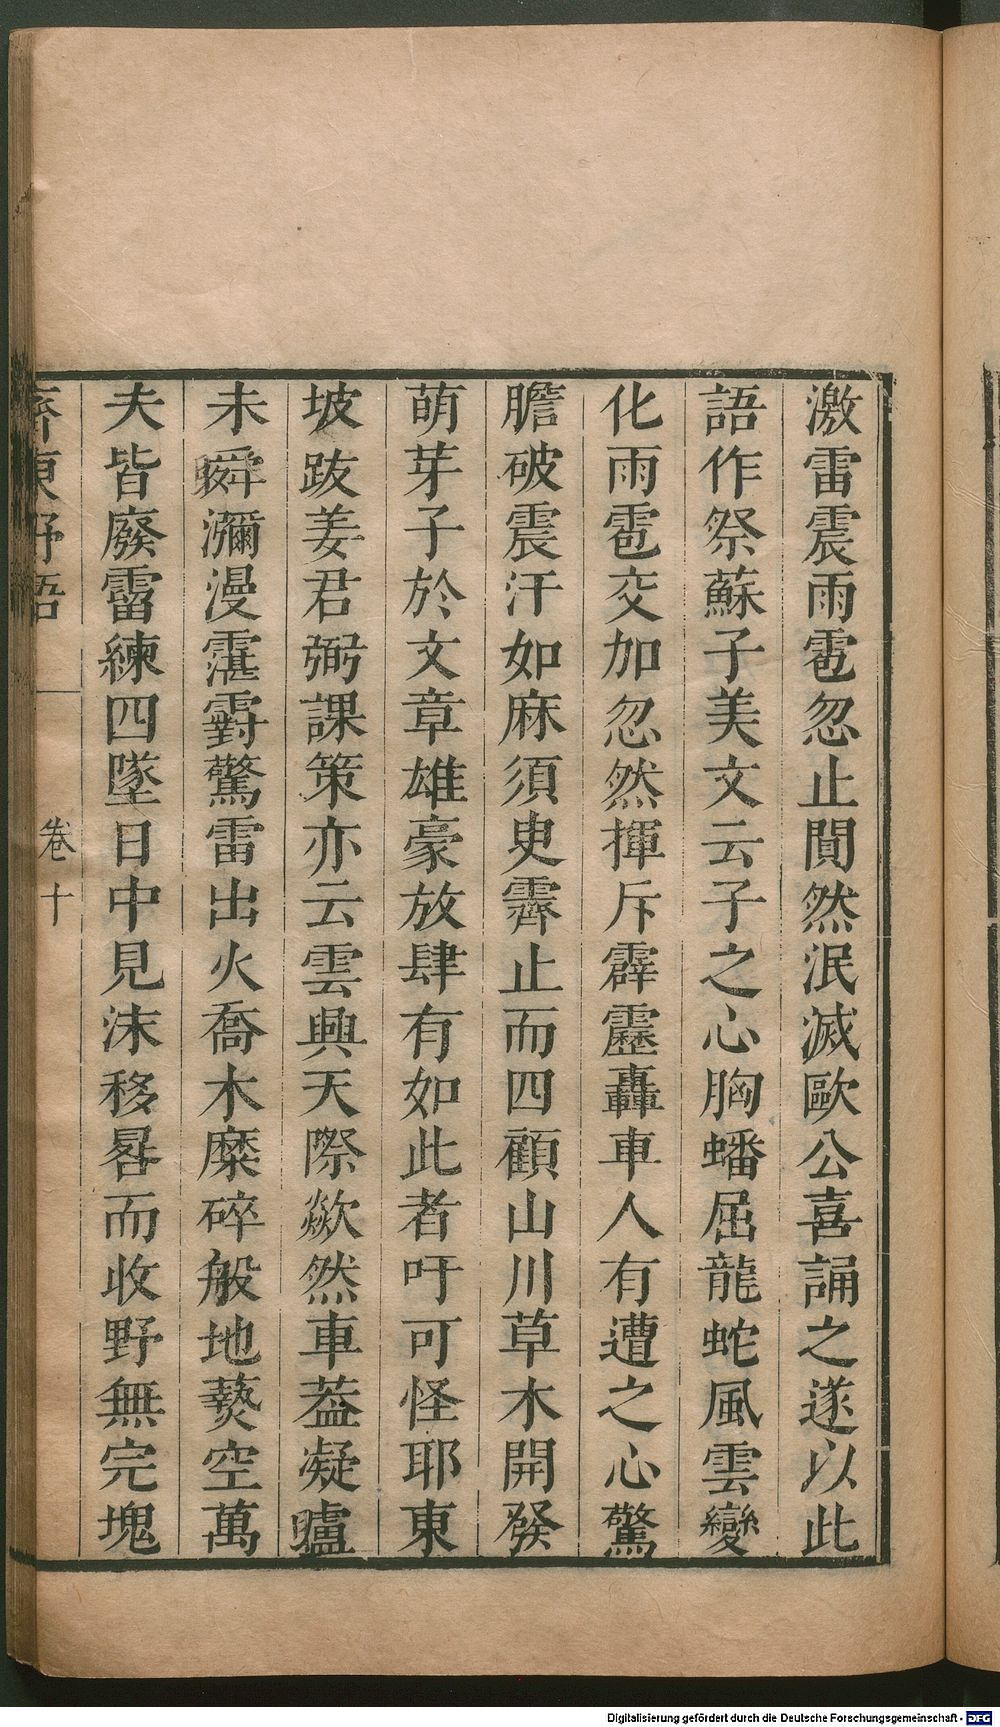 激雷震雨雹忽止闃然泯滅歐公喜誦之遂以此
語作祭蘇子美文云子之心胸蟠屈龍蛇風雲變
化雨雹交加忽然揮斥霹靂轟車人有遭之心驚
膽破震汗如麻須臾霽止而四顧山川草木開發
萌芽子於文章雄豪放肆有如此者吁可怪耶東
坡跋姜君弼課策亦云雲興天際歘然車葢凝矑
未瞬瀰漫霮䨴驚雷出火喬木糜碎般地爇空萬
夫皆廢霤練四墜日中見沫移晷而收野無完塊
齊東野語
卷十
Digitalisierung gefördert durch die Deutsche Forschungsgemeinschaft - DFG